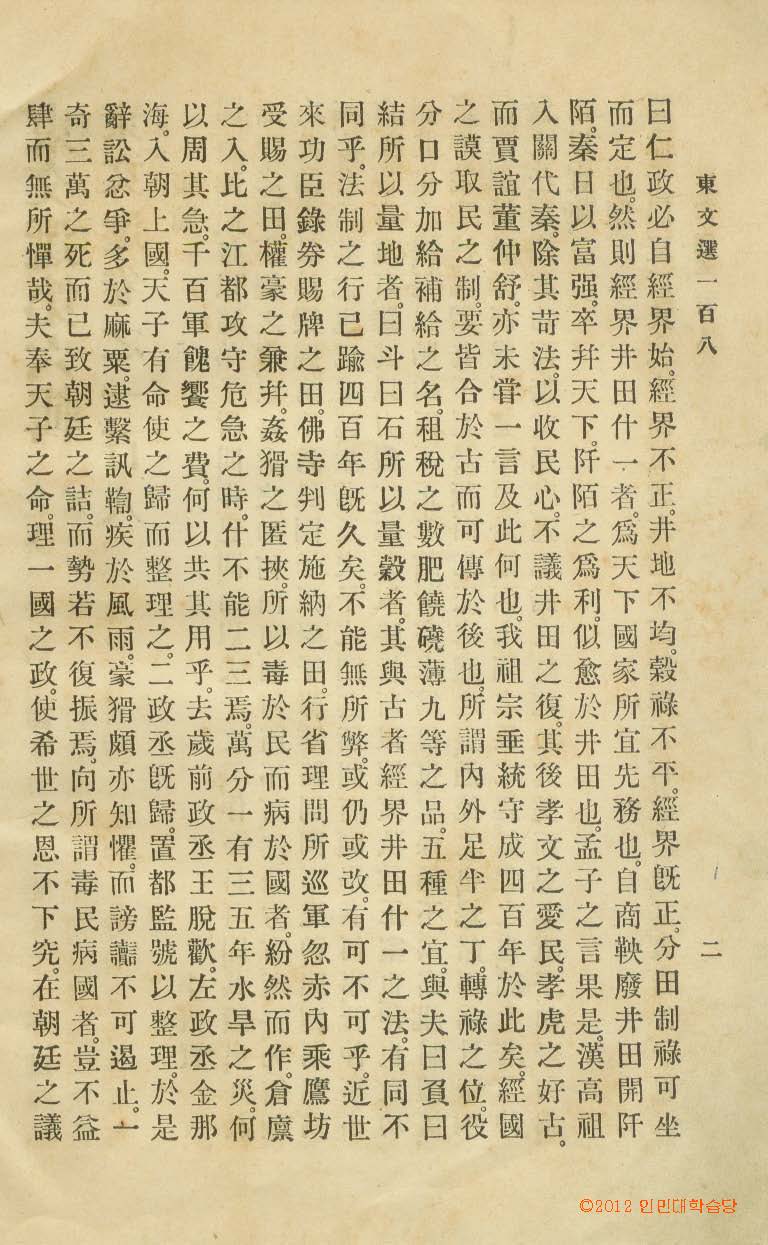 東文選一百八 二
曰仁政必自經界始。經界不正。井地不均。穀祿不平。經界旣正。分田制祿可坐
而定也。然則經界井田什一者。爲天下國家所宜先務也。自商鞅廢井田開阡
陌。秦日以富强。卒幷天下。阡陌之爲利。似愈於井田也。孟子之言果是。漢高祖
入關代秦。除其苛法。以收民心。不議井田之復。其後孝文之愛民。孝虎之好古。
而賈誼董仲舒。亦未甞一言及此何也。我祖宗垂統守成四百年於此矣。經國
之謨取民之制。要皆合於古而可傳於後也。所謂內外足半之丁。轉祿之位。役
分口分加給補給之名。租稅之數肥饒磽薄九等之品。五種之宜。與夫曰負曰
結所以量地者。曰斗曰石所以量穀者。其與古者經界井田什一之法。有同不
同乎。法制之行已踰四百年旣久矣。不能無所弊。或仍或改。有可不可乎。近世
來功臣錄券賜牌之田。佛寺判定施納之田。行省理問所巡軍忽赤內乘鷹坊
受賜之田。權豪之兼幷。姦猾之匿挾。所以毒於民而病於國者。紛然而作。倉廩
之入。比之江都攻守危急之時。什不能二三焉。萬分一有三五年水旱之災。何
以周其急。千百軍餽饗之費。何以共其用乎。去歲前政丞王脫歡。左政丞金那
海。入朝上國。天子有命使之歸而整理之。二政丞旣歸。置都監號以整理。於是
辭訟忿爭。多於麻粟。逮繫訊鞫。疾於風雨。豪猾頗亦知懼。而謗讟不可遏止。一
奇三萬之死而已致朝廷之詰。而勢若不復振焉。向所謂毒民病國者。豈不益
肆而無所憚哉。夫奉天子之命。理一國之政。使希世之恩不下究。在朝廷之議
©2012 인민대학습당